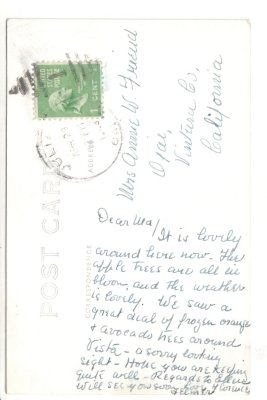 POST CARD
CORRESPONDENCE
ADDRESS
1 CENT
Mrs Annie W Friend
Ojai,
Ventura Co,
California
Dear Ma/
It is lovely
around here now. The
apple trees are all in
bloom, and the weather
is lovely. We saw a
great deal of frozen orange
+ avocado trees around
Vista - a sorry looking
sight - Hope you are keeping
quite well - Regards to
will see you soon. Love Florence